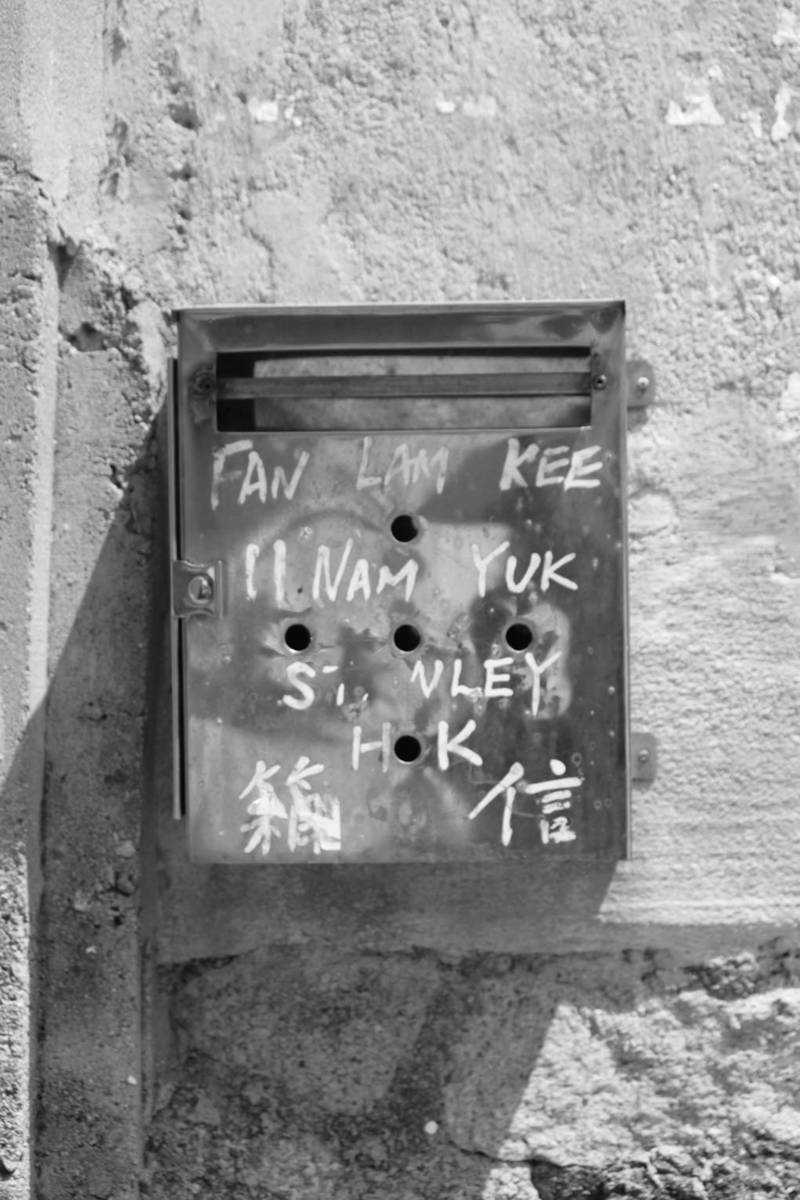 FAN LAM KEE
11 NAM YUK
STANLEY
H K
信箱